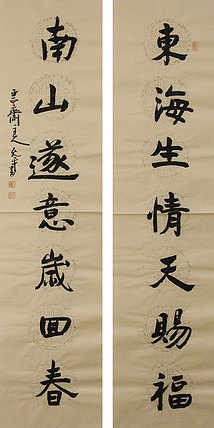 東海生情天賜福
南山遂意歲回春